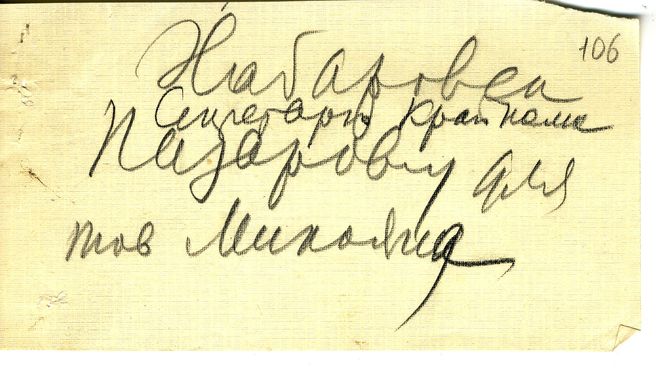 106
Хабаровск
Секретарю Крайкома
Назарову для
тов Микояна